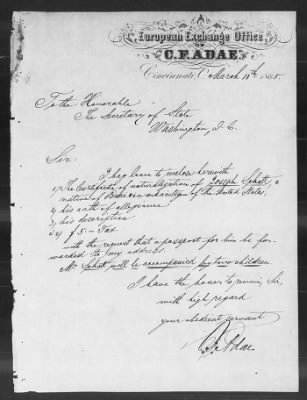 European Exchange Office
OF
C. F. ADAE.
Cincinnati, O. March 11th
To the Honorable
The Secretary of State
Washington, D. C.
Sir:
I beg leave to inclose herewith
1, The Certificate of naturalization of Joseph Schott, a
native of and citizen of the United States.
2, his oath of allegiance
3, his description
4, $5.- Tax
with the request that a passport for him be for-
warded to my address.
Mr Schott will be accompanied by two children
I have the honor to remain, Sir,
with high regard
your obedient servant
C. F. Adae